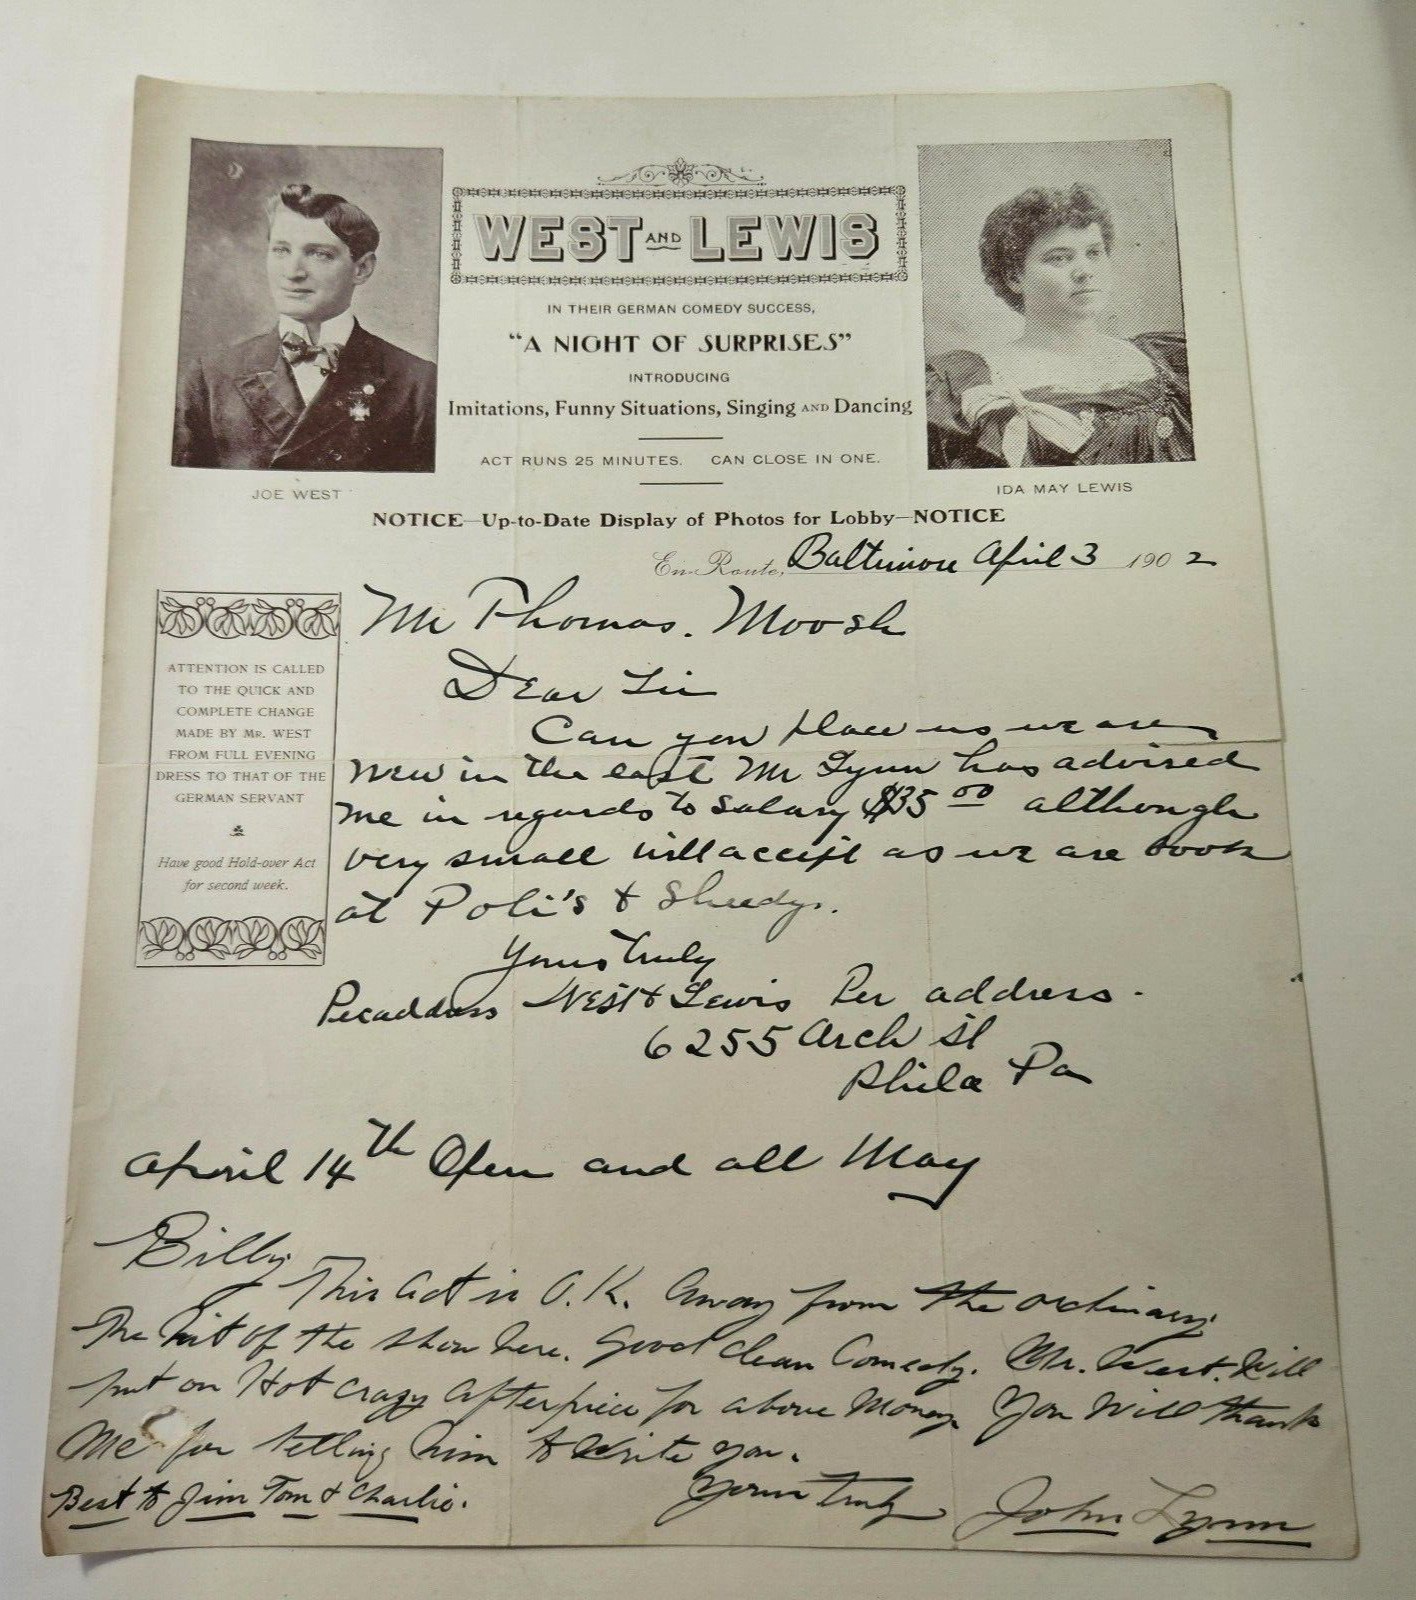 WEST AND LEWIS
IN THEIR GERMAN COMEDY SUCCESS,
"A NIGHT OF SURPRISES"
INTRODUCING
Imitations, Funny Situations, Singing AND Dancing
ACT RUNS 25 MINUTES. CAN CLOSE IN ONE.
JOE WEST
IDA MAY LEWIS
NOTICE—Up-to-Date Display of Photos for Lobby—NOTICE
En-Route, Baltimore April 3 1902
ATTENTION IS CALLED
TO THE QUICK AND
COMPLETE CHANGE
MADE BY MR. WEST
FROM FULL EVENING
DRESS TO THAT OF THE
GERMAN SERVANT
Have good Hold-over Act
for second week.
Mr Thomas. Moosh
Dear Sir
Can you place us we are
new in the east Mr Lynn has advised
me in regards to Salary $35 00 although
very small will accept as we are book
at Poli's & Sheedys.
Yours truly
Peraddress West & Lewis Per address.
6255 Arch St
Phila Pa
April 14th Open and all May
Billy
This act is O.K. Away from the ordinary
The hit of the show here. Good clean Comedy. Mr. West. Will
put on Hot crazy afterpiece for above Money. You Will thank
Me for telling him to write you.
Yours truly John Lynn
Best to Jim Tom & Charlie.